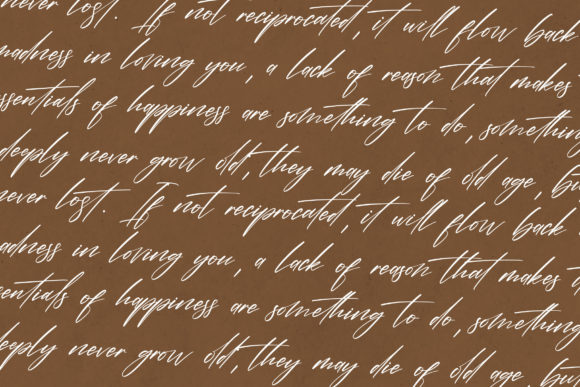 never lost. If not reciprocated, it will flow back
madness in loving you, a lack of reason that makes
essentials of happiness are something to do, something
deeply never grow old, they may die of old age, bu
never lost. If not reciprocated, it will flow back
madness in loving you, a lack of reason that makes
sentials of happiness are something to do, something
deeply never grow old, they may die of old age, bu